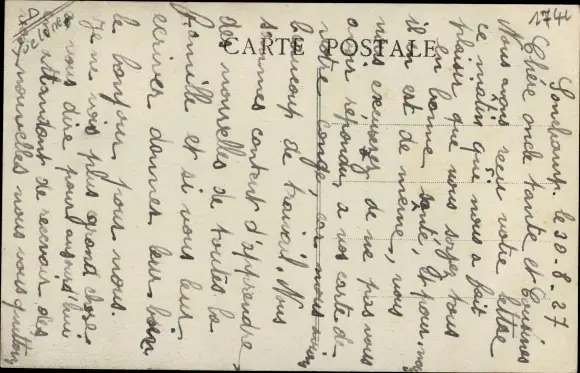 1744
CARTE POSTALE
Sonchamp. le 30-8-27
Chère oncle tante et Cousines
Nous avons recu votre lettre
ce matin qui nous a fait
plaisir que vous soyez tous
en bonne santé, et pour
il en est de meme, vous
nous excuserez de ne pas vous
avoir répondu a vos carte de
votre congé, car nous
beaucoup de travail. Nous
sommes content d'apprendre
des nouvelles de toutes la
famille et si vous leur
ecriver donner leur bien
le bonjour pour nous.
Je ne vois plus grand chose
a vous dire pour aujourd'hui
en attendant de recevoir des
nouvelles nous vous quittons